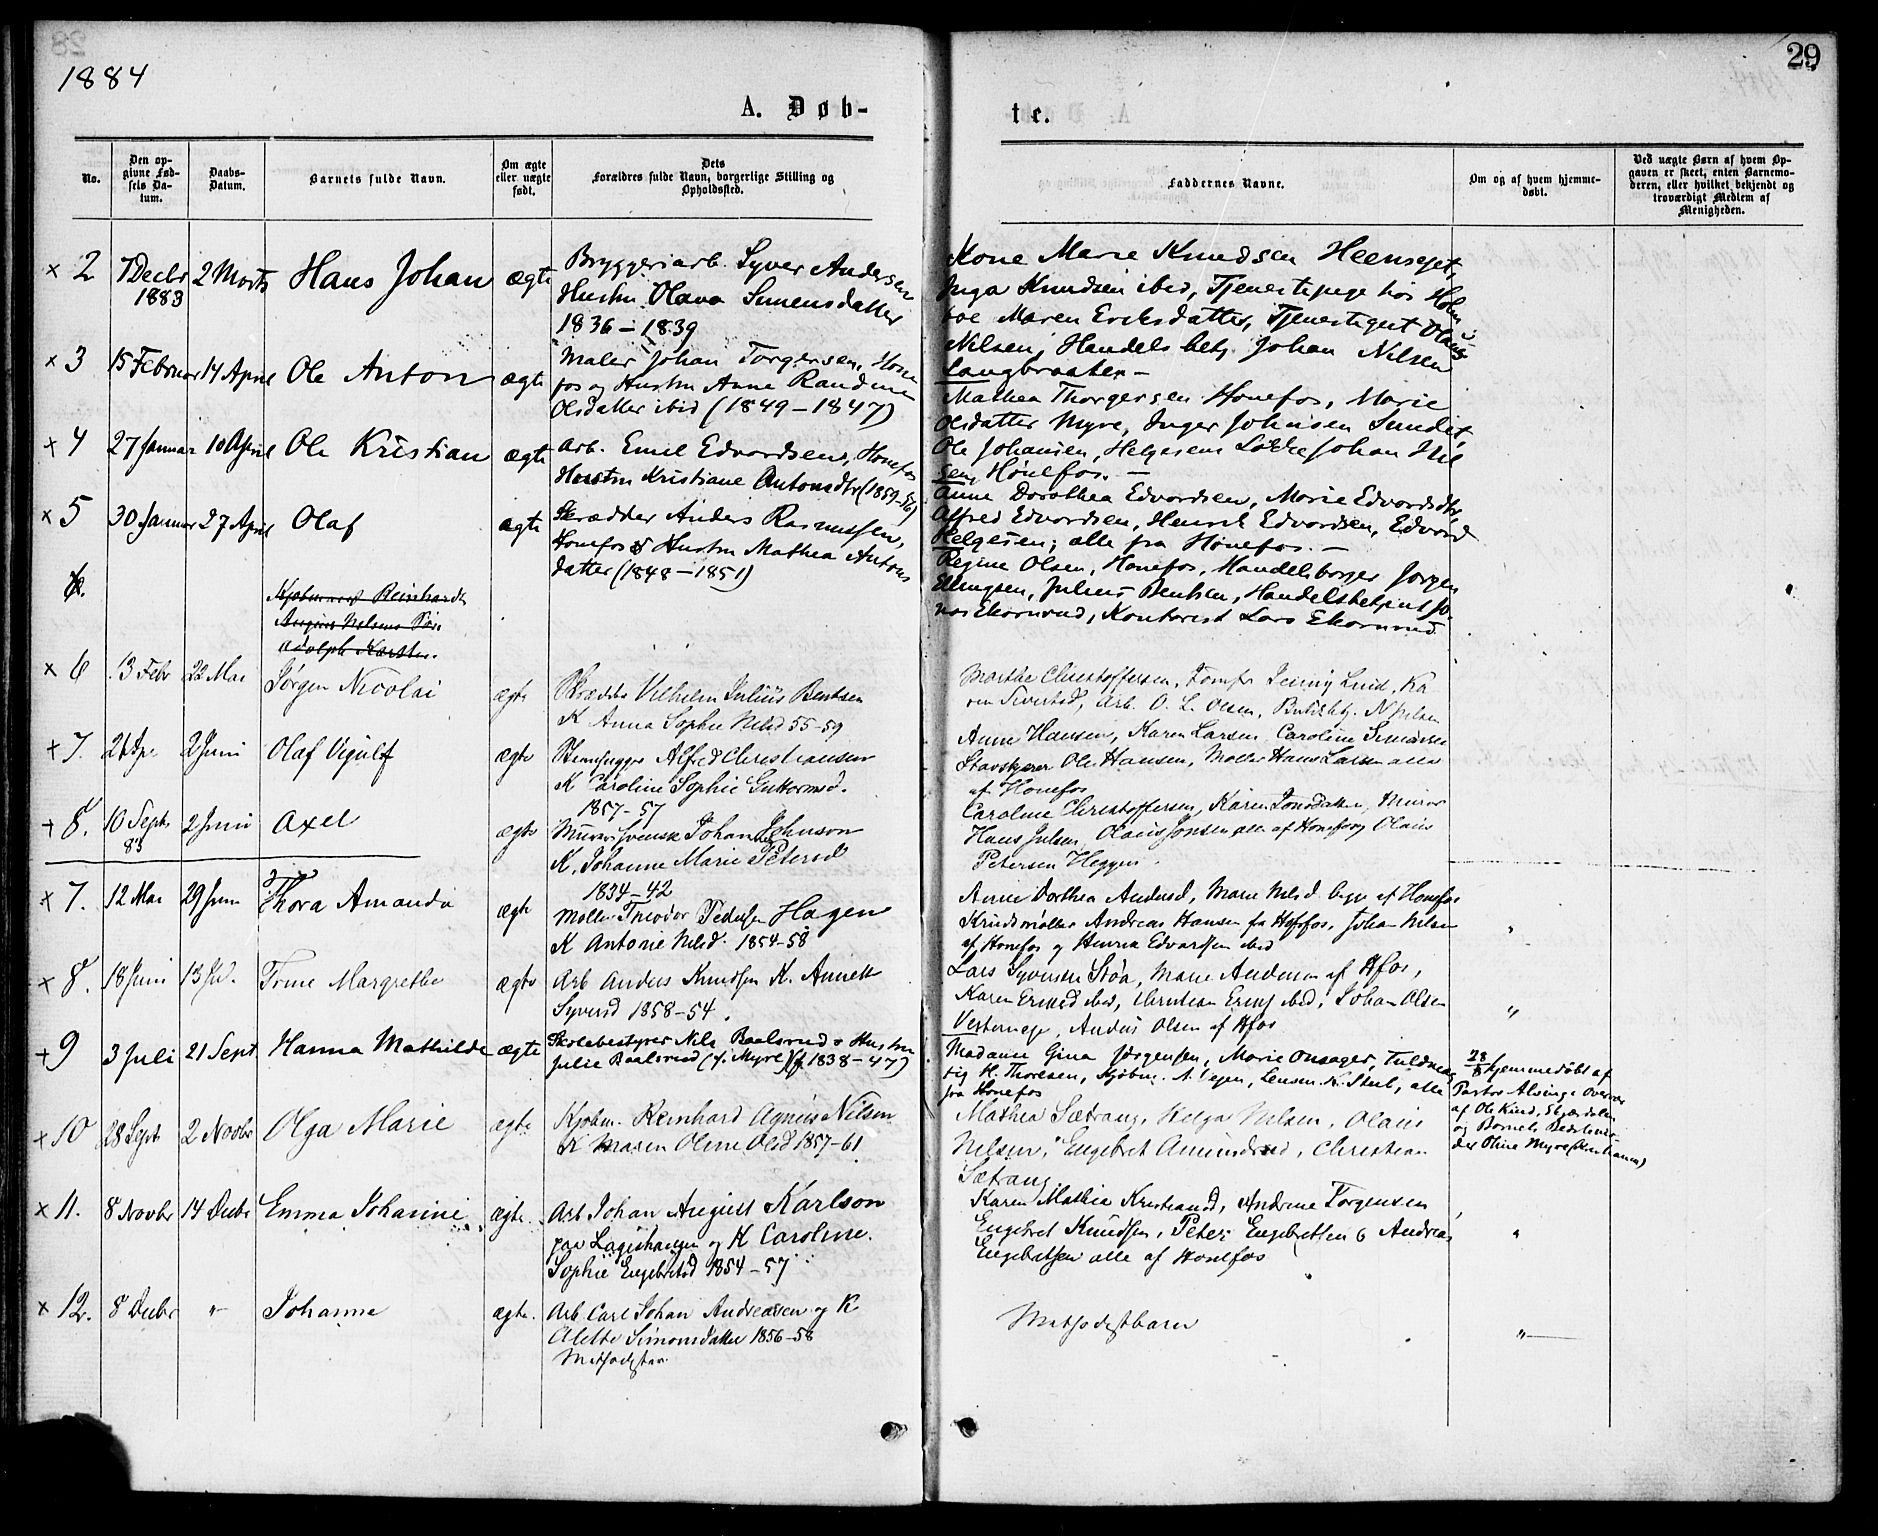 1884
29
A. Døb-
te.
No.
Den op-
givne Fød-
sels Da-
tum.
Daabs-
Datum.
Barnets fulde Navn.
Om ægte
eller uægte
født.
Dets
Forældres fulde Navn, borgerlige Stilling og
Opholdssted.
Faddernes Navne.
Om og af hvem hjemme-
døbt.
Ved uægte Børn af hvem Op-
gaven er skeet, enten Barnemo-
deren, eller hvilket bekjendt og
troværdigt Medlem af
Menigheden.
× 2 7 Decbr 2 Marts Hans Johan ægte
1883
Bryggeriarb. Syver Andersen
Hustru Olava Simensdatter
1836–1839
Kone Marie Knudsen Heenseget,
Inga Knudsen ibid, Tjenestepige hos Holm
boe Maren Eriksdatter, Tjenestegut Olaus
Nilsen, Handelsbetj. Johan Nilsen
Langbraaten –
× 3 15 Februar 14 April Ole Anton ægte
Maler Johan Torgersen, Høne
fos og Hustru Anne Randine
Olsdatter ibid (1849–1847)
Mathea Thorgersen Hønefos, Marie
Olsdatter Myre, Inger Johnsen Sundet,
Ole Johansen, Helgesens Løkke Johan Niel
sen, Hønefos. –
× 4 27 Januar 10 April Ole Kristian ægte
Arb. Emil Edvardsen, Hønefos
Hustru Kristiane Antonsdtr (1859–56)
Anne Dorothea Edvardsen, Marie Edvardsdtr,
Alfred Edvardsen, Henrik Edvardsen, Edvard
Helgesen; alle fra Hønefos. –
× 5 30 Januar 27 April Olaf ægte
Skrædder Anders Rasmussen,
Hønefos & Hustru Mathea Antons
datter (1848–1851)
Regine Olsen, Hønefos, Handelsborger Jørgen
Ellingsen, Julius Bentsen, Handelsbetjent Jo-
nas Ekornrud, Kontorist Lars Ekornrud.
6.
Kjøbmand Reinhardt
Agnus Nilsens Søn
Adolph Karsten.
× 6 13 Febr 22 Mai Jørgen Nicolai ægte
Skrædder Vilhelm Julius Bentsen
K Anna Sophie Nilsd 55–59
Marthe Christoffersen, Jomfr Jenny Lund, Ka
ren Sivertsd, Arb. O. L. Olsen, Butikbtj. N Nilsen
+ 7. 2 Juni Olaf Vigulf ægte
Stenhugger Alfred Christiansen
K Caroline Sophie Guttormsd.
1857–57
Anne Hansen, Karen Larsen, Caroline Simensen
Stavskjærer Ole Hansen, Møller Hans Larsen alle
af Hønefos
+ 8. 10 Septb 2 Juni Axel ægte
83
Murer Svenske Johan Johnson
K. Johanne Marie Petersd
1834–42
Caroline Christoffersen, Karen Jonsdatter, Murer
Hans Julsen, Olaus Jonsen alle af Hønefos og Olaus
Petersen Heggen.
× 7. 12 Mai 29 Juni Thora Amanda ægte
Møller Theodor Pedersen Hagen
K Antonie Nilsd. 1854–58
Anne Dorthea Andersd, Marie Nilsd begge af Hønefos
Krudtmøller Andreas Hansen fra Hoffos, Johan Nilsen
af Hønefos og Henrik Edvardsen ibid
× 8. 18 Juni 13 Jul. Trine Margrethe ægte
Arb Anders Knudsen K. Annette
Syversd 1858–54.
Lars Syversen Støa, Marie Andersen af Hfos,
Karen Eriksd ibid, Christian Erings ibid, Johan Olsen
Vesterneje, Anders Olsen af Hfos
"
+ 9 3 Juli 21 Sept Hanna Mathilde ægte
Skolebestyrer Nils Baalsrud & Hustru
Julie Baalsrud (f. Myre) (f 1838–47)
Madame Gina Jørgensen, Marie Onsager, Fuldmæg
tig H. Thoresen, Kjøbm. A. Vegen, Lensm. K. Steel, alle
fra Hønefos
28/8 hjemmedøbt af
Pastor Alsing i Overvær
af Ole Kind,
og Barnets Bedstemo-
der Oline Myre (Kristiania)
+ 10 28 Sept 2 Novbr Olga Marie ægte
Kjøbm. Reinhard Agnus Nilsen
K Maren Oline Olsd 1857–61
Mathea Sætrang, Helga Nilsen, Olaus
Nilsen, Engebret Amundsrud, Christian
Sætrang
× 11. 8 Novbr 14 Decbr Emma Johanne ægte.
Arb Johan August Karlson
paa Lagishaugen og K Caroline.
Sophie Engebretsd 1854–57
Karen Mathia Kristiansd, Andrine Torgersen
Engebret Knudsen, Peter Engebretsen & Andreas
Engebretsen alle af Hønefos
"
× 12. 8 Decbr " Johanne ægte.
Arb. Carl Johan Andreassen og K
Alette Simonsdatter 1856–58
Methodister
Methodistbarn
"